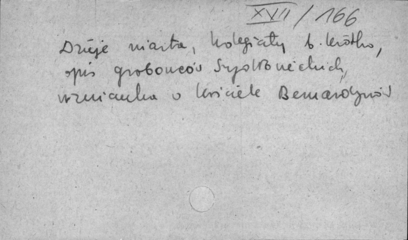 XVII/166
Dzieje miasta, kolegiaty b. krótko,
opis grobowców Szydłowieckich,
wzmianka o kościele Bernardynów